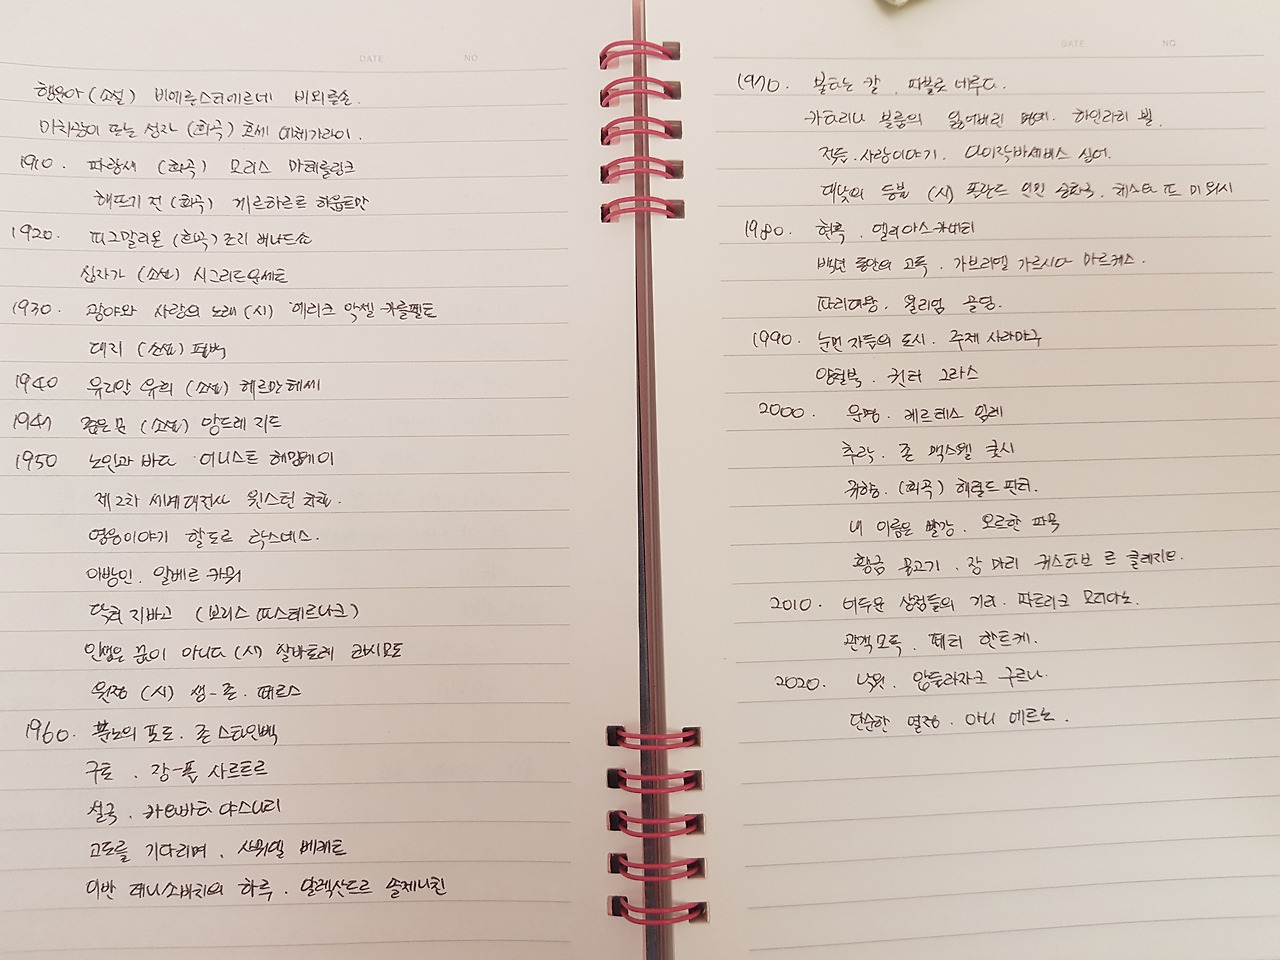 DATE NO
행운아 (소설) 비에른스티에르네 비외른손.
미치광이 또는 성자 (희곡) 호세 에체가라이.
1910. 파랑새 (희곡) 모리스 마테를링크
해뜨기 전 (희곡) 게르하르트 하웁트만
1920. 피그말리온 (희곡) 조지 버나드쇼
십자가 (소설) 시그리드운세트
1930. 광야와 사랑의 노래 (시) 에리크 악셀 카를펠트
대지 (소설) 펄벅
1940 유리알 유희 (소설) 헤르만헤세
좁은문 (소설) 앙드레 지드
1950 노인과 바다 어니스트 헤밍웨이
제2차 세계대전사 윈스턴 처칠.
영웅이야기 할도르 락스네스.
이방인. 알베르 카뮈
닥터 지바고 (보리스 파스테르나크)
인생은 꿈이 아니다 (시) 살바토레 콰시모도
원정 (시) 생-존. 페르스
1960. 분노의 포도. 존 스타인벡
구토 . 장-폴 사르트르
설국. 가와바타 야스나리
고도를 기다리며. 사뮈엘 베케트
이반 데니소비치의 하루. 알렉산드르 솔제니친
DATE NO
1970. 불타는 칼 . 파블로 네루다.
카타리나 블룸의 잃어버린 명예. 하인리히 뵐.
적들. 사랑이야기. 아이작바셰비스 싱어.
대낮의 등불 (시) 폴란드 인민 공화국. 체스와프 미워시
1980. 현혹 . 엘리아스카네티
백년 동안의 고독. 가브리엘 가르시아 마르케스.
파리대왕. 윌리엄 골딩.
1990. 눈먼 자들의 도시. 주제 사라마구
양철북. 귄터 그라스
2000. 운명. 케르테스 임레
추락. 존 맥스웰 쿳시
귀향. (희곡) 해럴드 핀터.
내 이름은 빨강. 오르한 파묵
황금 물고기 . 장 마리 귀스타브 르 클레지오.
2010. 어두운 상점들의 거리. 파트리크 모디아노.
관객모독. 페터 한트케.
2020. 낙원. 압둘라자크 구르나.
단순한 열정. 아니 에르노.